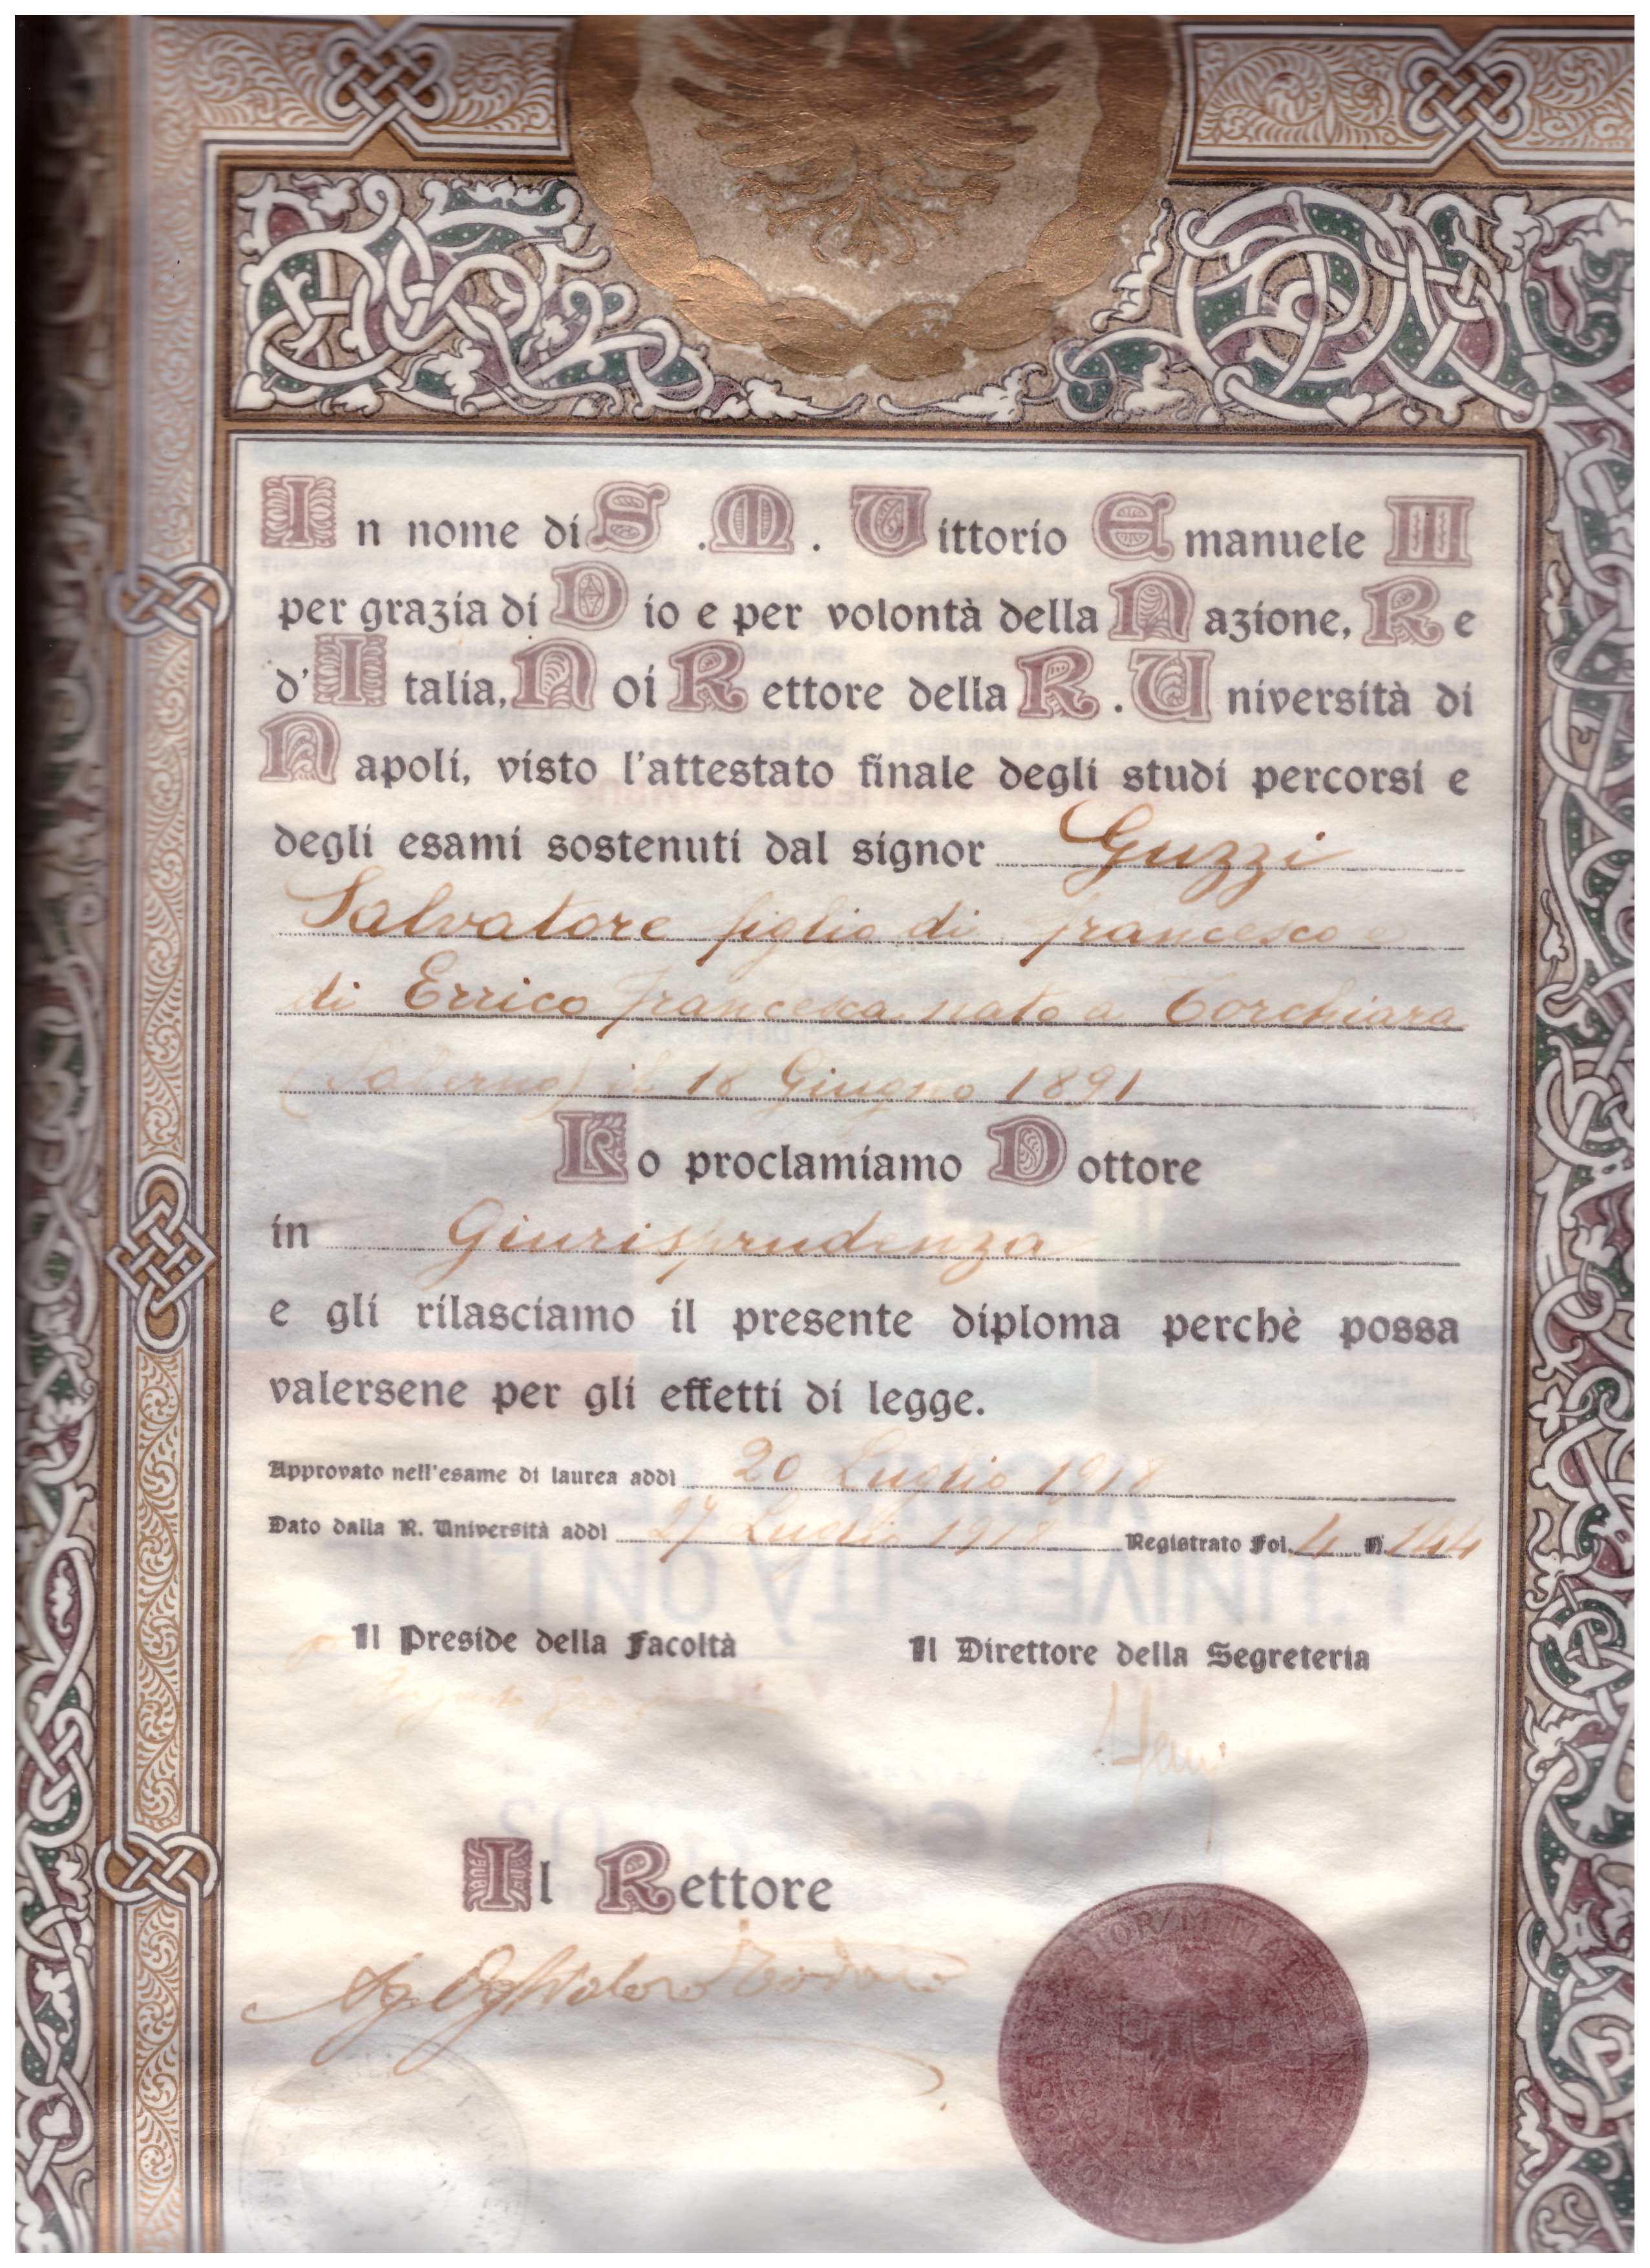 In nome di S. M. Vittorio Emanuele III
per grazia di Dio e per volontà della Nazione, Re
d'Italia, Noi Rettore della R. Università di
Napoli, visto l'attestato finale degli studi percorsi e
degli esami sostenuti dal signor Guzzi
Salvatore figlio di Francesco e
di Errico Francesca nato a Torchiara
(Salerno) il 18 Giugno 1891
Lo proclamiamo Dottore
in Giurisprudenza
e gli rilasciamo il presente diploma perchè possa
valersene per gli effetti di legge.
Approvato nell'esame di laurea addì 20 Luglio 1918
Dato dalla R. Università addì 27 Luglio 1918 Registrato Fol. 4 N. 144
Il Preside della Facoltà
Il Direttore della Segreteria
Augusto Graziani
Il Rettore